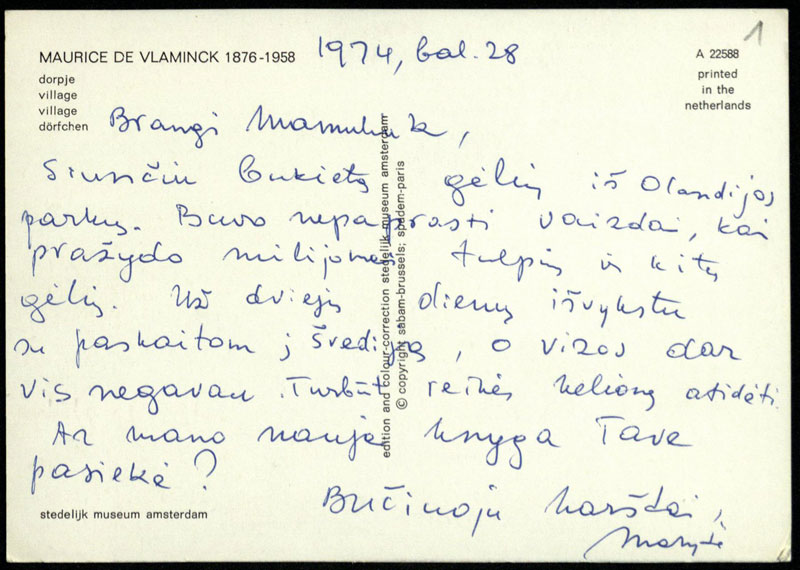 1974, bal. 28
1
MAURICE DE VLAMINCK 1876-1958
dorpje
village
village
dörfchen
A 22588
printed
in the
netherlands
Brangi Mamuliuk,
Siunčiu bukietą gėlių iš Olandijos
parkų. Buvo nepaprasti vaizdai, kai
pražydo milijonai tulpių ir kitų
gėlių. Už dviejų dienų išvykstu
su paskaitom į Švediją, o vizos dar
vis negavau. Turbūt reikės kelionę atidėti.
Ar mano nauja knyga Tave
pasiekė?
Bučiuoju karštai,
Marytė
edition and colour-correction stedelijk museum amsterdam
© copyright sabam-brussels; spadem-paris
stedelijk museum amsterdam